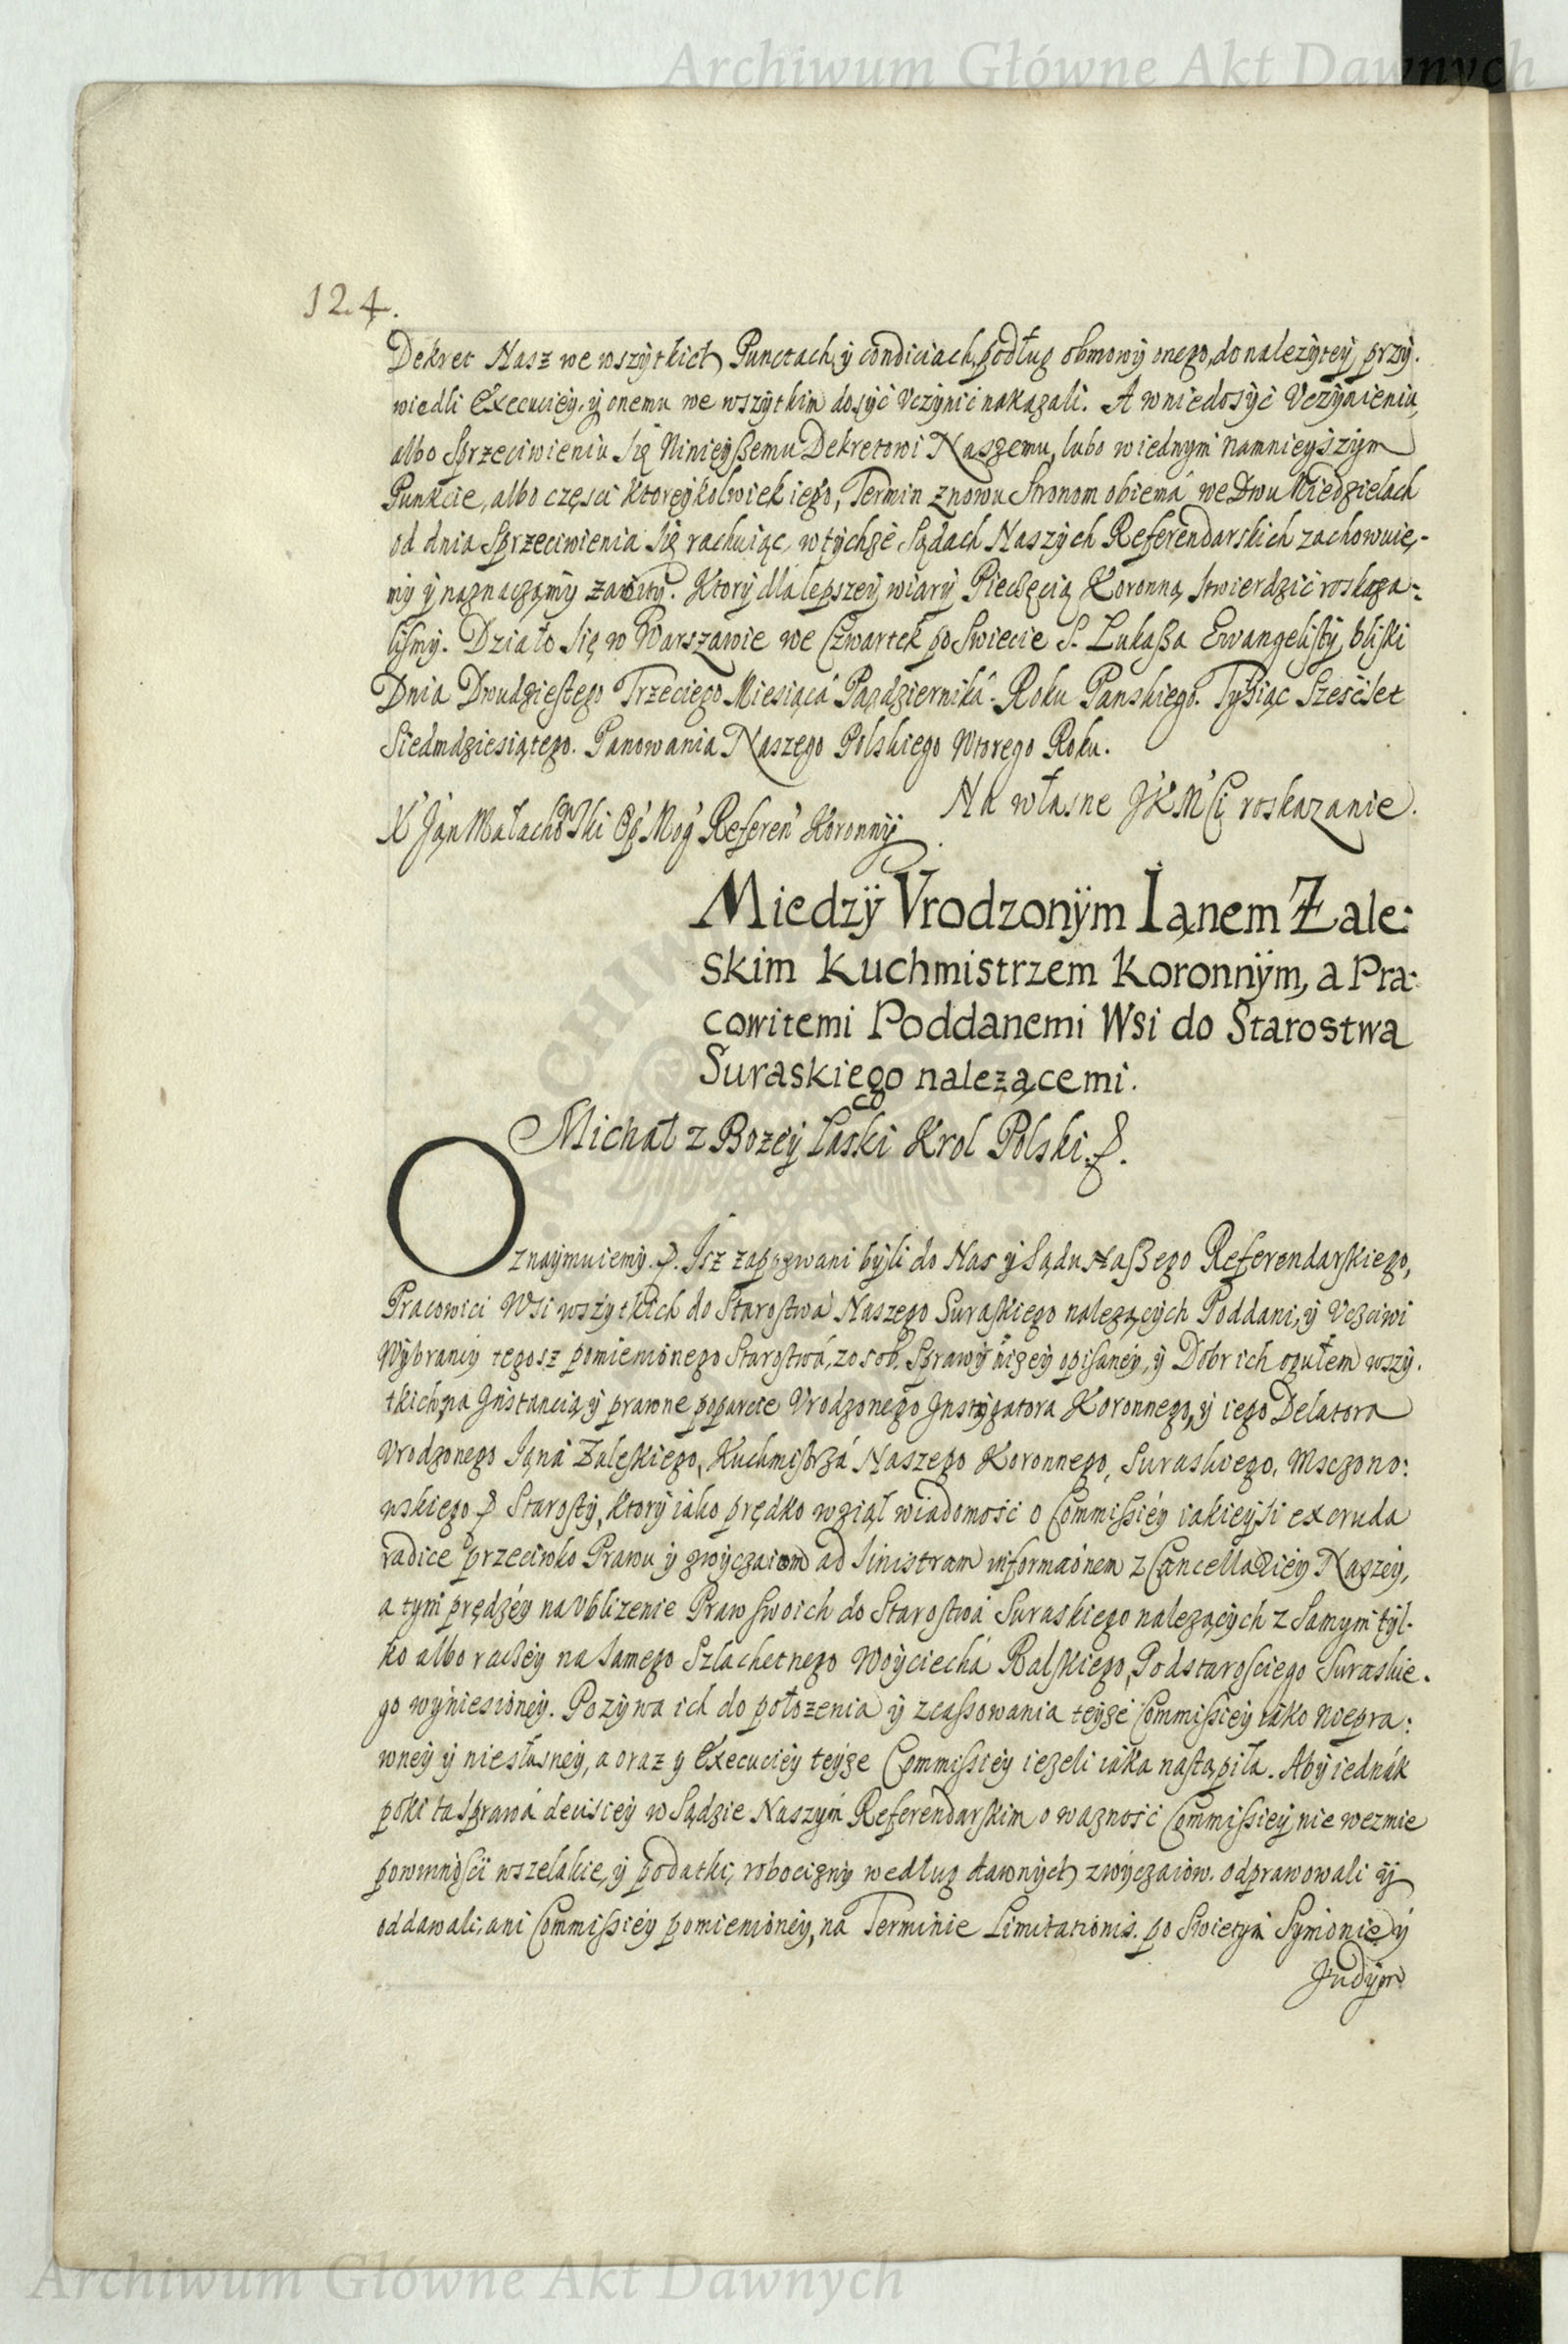 Archiwum Główne Akt Dawnych
124.
Dekret Nasz we wszytkich Punctach, y condiciach, podług obmowy onego, do nalezytey przy.
wiedli Execuciey, y onemu we wszytkim dosyć Vczynić nakazali. A w niedosyć Vczynieniu,
albo Sprzeciwieniu Się Ninieyßemu Dekretowi Naszemu, lubo w iednym namnieyszym
Punkcie, albo częsci ktoreykolwiek iego, Termin znowu Stronom obiemá we Dwu Niedzielach
od dnia Sprzeciwienia Się rachuiąc, w tychże Sądach Naszych Referendarskich zachowuie-
my y naznaczamy zawity. Ktory dla lepszey wiary Pieczęcią Koronną Stwierdzić roskaza-
lismy. Działo Się w Warszawie we Czwartek po Swiecie S. Lukaßa Ewangelisty bliski
Dnia Dwudziestego Trzeciego Miesiącá Pazdzierniká. Roku Panskiego. Tysiąc Sześćset
Siedmdziesiątego. Panowania Naszego Polskiego Wtorego Roku.
Na własne JKMCi roskazanie.
X Jan Małachowski Op. Mog. Referen Koronny
Miedzÿ Vrodzonÿm Ianem Zale:
skim Kuchmistrzem Koronnÿm, a Pra:
cowitemi Poddanemi Wsi do Starostwa
Suraskiego nalezącemi.
Michał z Bozey Łaski Krol Polski &.
Oznaymuiemy &. Isz zapozwani byli do Nas y Sądu Naßego Referendarskiego,
Pracowici Wsi wszytkich do Starostwa Naszego Suraskiego nalezących Poddani, y Vczciwi
Wybrancy tegosz pomienionego Starostwá, z osob, Sprawy nizey opisaney, y Dobr ich ogułem wszy.
tkich, na Instancią y prawne poparcie Vrodzonego Instygatora Koronnego, y iego Delatora
Vrodzonego Janá Zaleskiego, Kuchmistrzá Naszego Koronnego, Suraskiego, Msczono:
wskiego & Starosty, ktory iako prędko wziął wiadomość o Commissiey iakieysi ex cruda
radice przeciwko Prawu y zwyczaiom ad Sinistram informaonem z Cancellariey Naszey,
a tym prędzey na Vblizenie Praw swoich do Starostwá Suraskiego nalezących z Samym tyl-
ko albo raczey na Samego Szlachetnego Woyciechá Ralskiego, Podstarosciego Suraskie-
go wyniesioney. Pozywa ich do połozenia y zcassowania teyże Commissiey iako niepra:
wney y niesłusney, a oraz y Execuciey teyże Commissiey iezeli iáka nastąpiła. Aby iednák
poki ta Sprawá decisiey w Sądzie Naszym Referendarskim o wazność Commissiey nie wezmie
powinnosci wszelakie, y podatki, robocizny według dawnych zwyczaiow. odprawowali y
oddawali, ani Commissiey pomienioney, na Terminie Limitationis. po Swietym Symonie y
Judym
Archiwum Główne Akt Dawnych